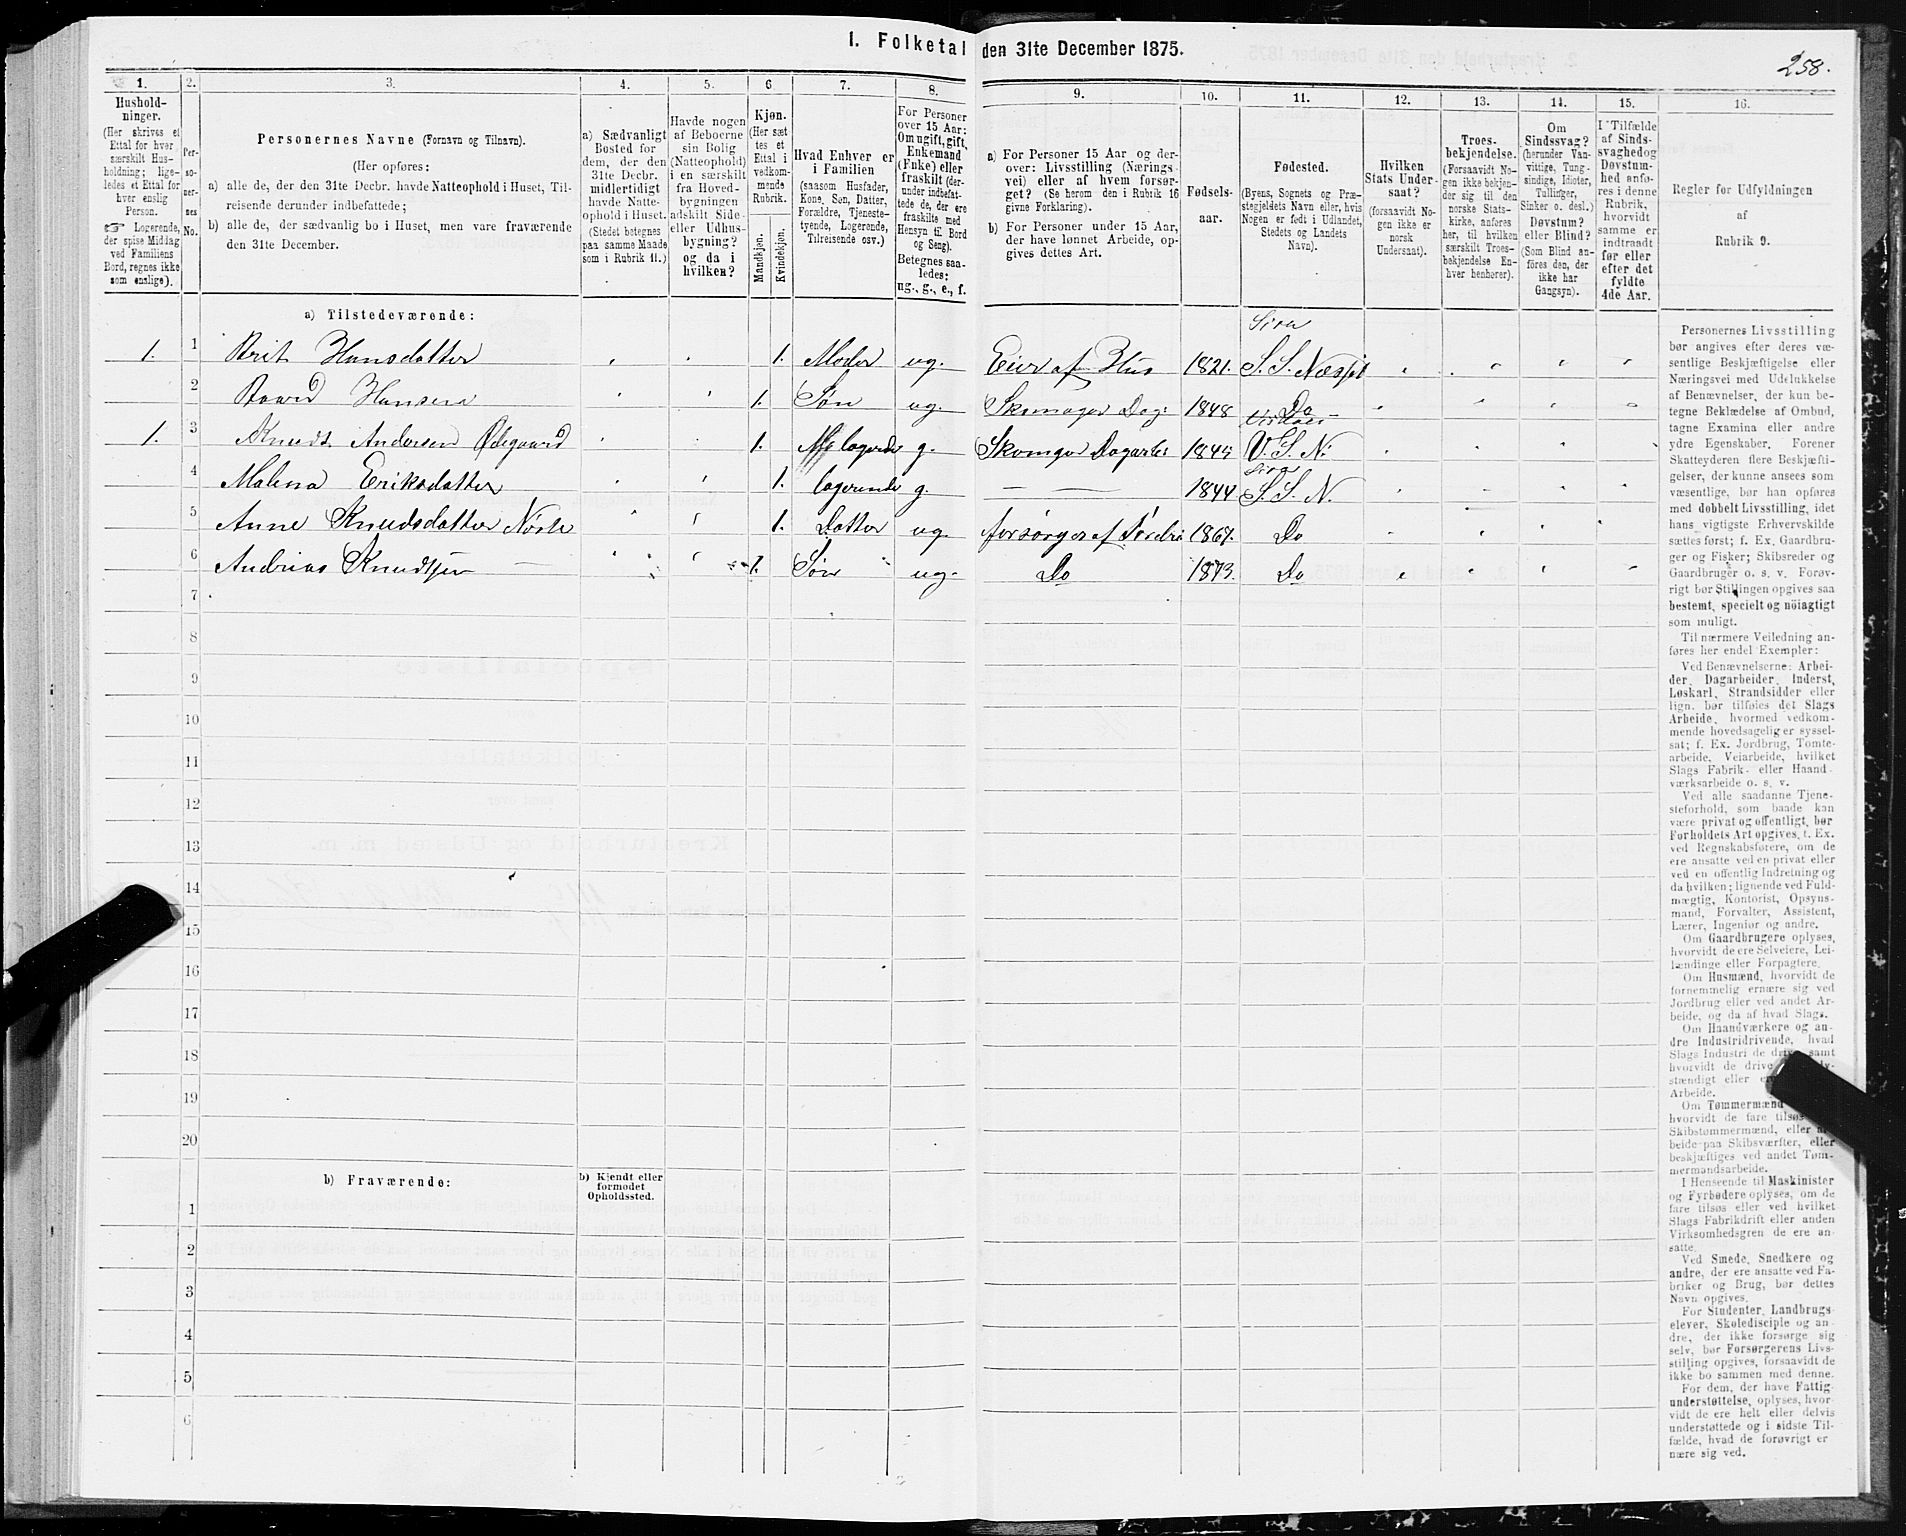 1. Folketal den 31te December 1875.
258.
1.
Hushold-
ninger.
(Her skrives et
Ettal for hver
særskilt Hus-
holdning; lige-
ledes et Ettal for
hver enslig
Person.
☞ Logerende,
der spise Middag
ved Familiens
Bord, regnes ikke
som enslige).
2.
Per-
so-
ner-
nes
No.
3.
Personernes Navne (Fornavn og Tilnavn).
(Her opføres:
a) alle de, der den 31te Decbr. havde Natteophold i Huset, Til-
reisende derunder indbefattede;
b) alle de, der sædvanlig bo i Huset, men vare fraværende
den 31te December.
4.
a) Sædvanligt
Bosted for
dem, der den
31te Decbr.
midlertidigt
havde Natte-
ophold i Huset.
(Stedet betegnes
paa samme Maade
som i Rubrik 11.)
5.
Havde nogen
af Beboerne
sin Bolig
(Natteophold)
i en særskilt
fra Hoved-
bygningen
adskilt Side-
eller Udhus-
bygning?
og da i
hvilken?
6.
Kjøn.
(Her sæt
tes et
Ettal i
vedkom-
mende
Rubrik.
Mandkjøn.
Kvindekjøn.
7.
Hvad Enhver er
i Familien
(saasom Husfader,
Kone, Søn, Datter,
Forældre, Tjeneste-
tyende, Logerende,
Tilreisende osv.)
8.
For Personer
over 15 Aar:
Om ugift, gift,
Enkemand
(Enke) eller
fraskilt (der-
under indbefat-
tede de, der ere
fraskilte med
Hensyn til Bord
og Seng).
Betegnes saa-
ledes:
ug., g., e., f.
9.
a) For Personer 15 Aar og der-
over: Livsstilling (Nærings-
vei) eller af hvem forsør-
get? (Se herom den i Rubrik 16
givne Forklaring).
b) For Personer under 15 Aar,
der have lønnet Arbeide, op-
gives dettes Art.
10.
Fødsels-
aar.
11.
Fødested.
(Byens, Sognets og Præ-
stegjeldets Navn eller, hvis
Nogen er født i Udlandet,
Stedets og Landets
Navn).
12.
Hvilken
Stats Under-
saat?
(forsaavidt No-
gen ikke er
norsk
Undersaat).
13.
Troes-
bekjendelse.
(Forsaavidt No-
gen ikke bekjen-
der sig til den
norske Stats-
kirke, anføres
her, til hvilken
særskilt Troes-
bekjendelse En-
hver henhører).
14.
Om
Sindssvag?
(herunder Van-
vittige, Tung-
sindige, Idioter,
Tullinger,
Sinker o. desl.)
Døvstum?
eller Blind?
(Som Blind an-
føres den, der
ikke har
Gangsyn).
15.
I Tilfælde
af Sinds-
svaghed og
Døvstum-
hed anfø-
res i denne
Rubrik,
hvorvidt
samme er
indtraadt
før eller
efter det
fyldte
4de Aar.
16.
Regler for Udfyldningen
af
Rubrik 9.
a) Tilstedeværende:
Sira
1. 1 Brit Hansdatter 1. Moder ug. Eier af Hus 1821. S. S. Næsset
2 Baard Hansen 1. Søn ug. Skomager Dag: 1848 Do
1. 3 Knudt Andersen Ødegaard 1. logerende g. Skomger Dagarbei 1845 V. S. N.
Sira
4 Malena Eriksdatter 1. logerende g. — — 1844 S. S. N.
5 Anne Knudsdatter 1. Datter ug. forsørges af 1867. Do
6 Andrias Knudtsen — 1. Søn ug. Do 1873. Do
7
8
9
10
11
12
13
14
15
16
17
18
19
20
b) Fraværende:
b) Kjendt eller
formodet
Opholdssted.
1
2
3
4
5
6
Personernes Livsstilling
bør angives efter deres væ-
sentlige Beskjæftigelse eller
Næringsvei med Udelukkelse
af Benævnelser, der kun be-
tegne Beklædelse af Ombud,
tagne Examina eller andre
ydre Egenskaber. Forener
Skatteyderen flere Beskjæfti-
gelser, der kunne ansees som
væsentlige, bør han opføres
med dobbelt Livsstilling, idet
hans vigtigste Erhvervskilde
sættes først; f. Ex. Gaardbru-
ger og Fisker; Skibsreder og
Gaardbruger o. s. v. Forøv-
rigt bør Stillingen opgives saa
bestemt, specielt og nöiagtigt
som muligt.
Til nærmere Veiledning an-
føres her endel Exempler:
Ved Benævnelserne: Arbei-
der, Dagarbeider, Inderst,
Løskarl, Strandsidder eller
lign. bør tilføies det Slags
Arbeide, hvormed vedkom-
mende hovedsagelig er syssel-
sat; f. Ex. Jordbrug, Tomte-
arbeide, Veiarbeide, hvilket
Slags Fabrik- eller Haand-
værksarbeide o. s. v.
Ved alle saadanne Tjene-
steforhold, som baade kan
være privat og offentligt, bør
Forholdets Art opgives, f. Ex.
ved Regnskabsførere, om de
ere ansatte ved en privat eller
ved en offentlig Indretning og
da hvilken; lignende ved Fuld-
mægtig, Kontorist, Opsyns-
mand, Forvalter, Assistent,
Lærer, Ingeniør og andre.
Om Gaardbrugere oplyses,
hvorvidt de ere Selveiere, Lei-
lændinge eller Forpagtere.
Om Husmænd, hvorvidt de
fornemmelig ernære sig ved
Jordbrug eller ved andet Ar-
beide, og da af hvad Slags.
Om Haandværkere og an-
dre Industridrivende, hvad
Slags Industri de drive samt
hvorvidt de drive
stændigt eller
Arbeide.
Om Tømmermænd
hvorvidt de fare tilsøs
Skibstømmermænd, eller ar-
beide paa Skibsværfter, eller
beskjæftiges ved andet Tøm-
mermandsarbeide.
I Henseende til Maskinister
og Fyrbødere oplyses, om de
fare tilsøs eller ved hvilket
Slags Fabrikdrift eller anden
Virksomhedsgren de ere an-
satte.
Ved Smede, Snedkere og
andre, der ere ansatte ved Fa-
briker og Brug, bør dettes
Navn opgives.
For Studenter, Landbrugs-
elever, Skoledisciple og an-
dre, der ikke forsørge sig
selv, bør Forsørgerens Livs-
stilling opgives, forsaavidt de
ikke bo sammen med denne.
For dem, der have Fattig-
understøttelse, oplyses, hvor-
vidt de ere helt eller delvis
understøttede og i sidste Til-
fælde, hvad de forøvrigt er-
nære sig ved.